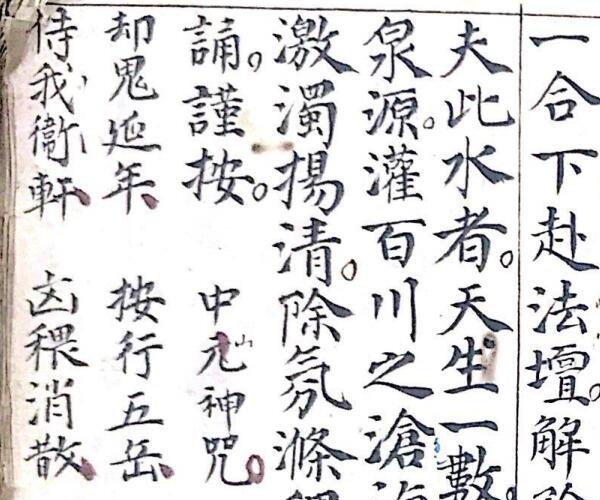 一合下赴法壇。解
夫此水者。天生一數。
泉源。灌百川之滄
激濁揚清。除氛滌
誦。謹按。 中元山神咒。
却鬼延年、 按行五岳、
侍我衛軒、 凶穢消散、